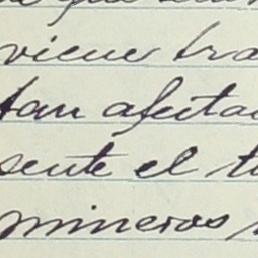 viene tra
tan afecta
sente el t
mineros